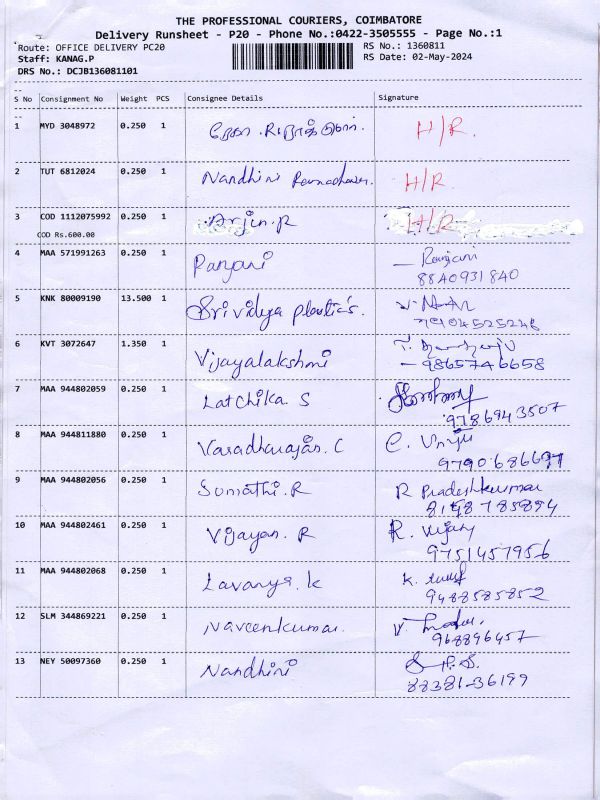 THE PROFESSIONAL COURIERS, COIMBATORE
Delivery Runsheet - P20 - Phone No.:0422-3505555 - Page No.:1
Route: OFFICE DELIVERY PC20
RS No.: 1360811
Staff: KANAG.P
RS Date: 02-May-2024
DRS No.: DCJB136081101
S No Consignment No Weight PCS Consignee Details Signature
1 MYD 3048972 0.250 1 H/R.
2 TUT 6812024 0.250 1 Nandhini H/R.
3 COD 1112075992 0.250 1 Arjin.R H/R
COD Rs.600.00
4 MAA 571991263 0.250 1 Ranjani - Ranjani
8840931840
5 KNK 80009190 13.500 1 Sri vidya plastics.
6 KVT 3072647 1.350 1 Vijayalakshmi
- 9865746658
7 MAA 944802059 0.250 1 Latchika. S
9786943507
8 MAA 944811880 0.250 1 Varadharajan. C
9790686697
9 MAA 944802056 0.250 1 Sumathi. R R Pradeshkumar
8198785894
10 MAA 944802461 0.250 1 Vijayan. R R. Vijay
9751457956
11 MAA 944802068 0.250 1 Lavanya. k
9488585852
12 SLM 344869221 0.250 1 Naveenkumar.
968896457
13 NEY 50097360 0.250 1 Nandhini
88381-36199